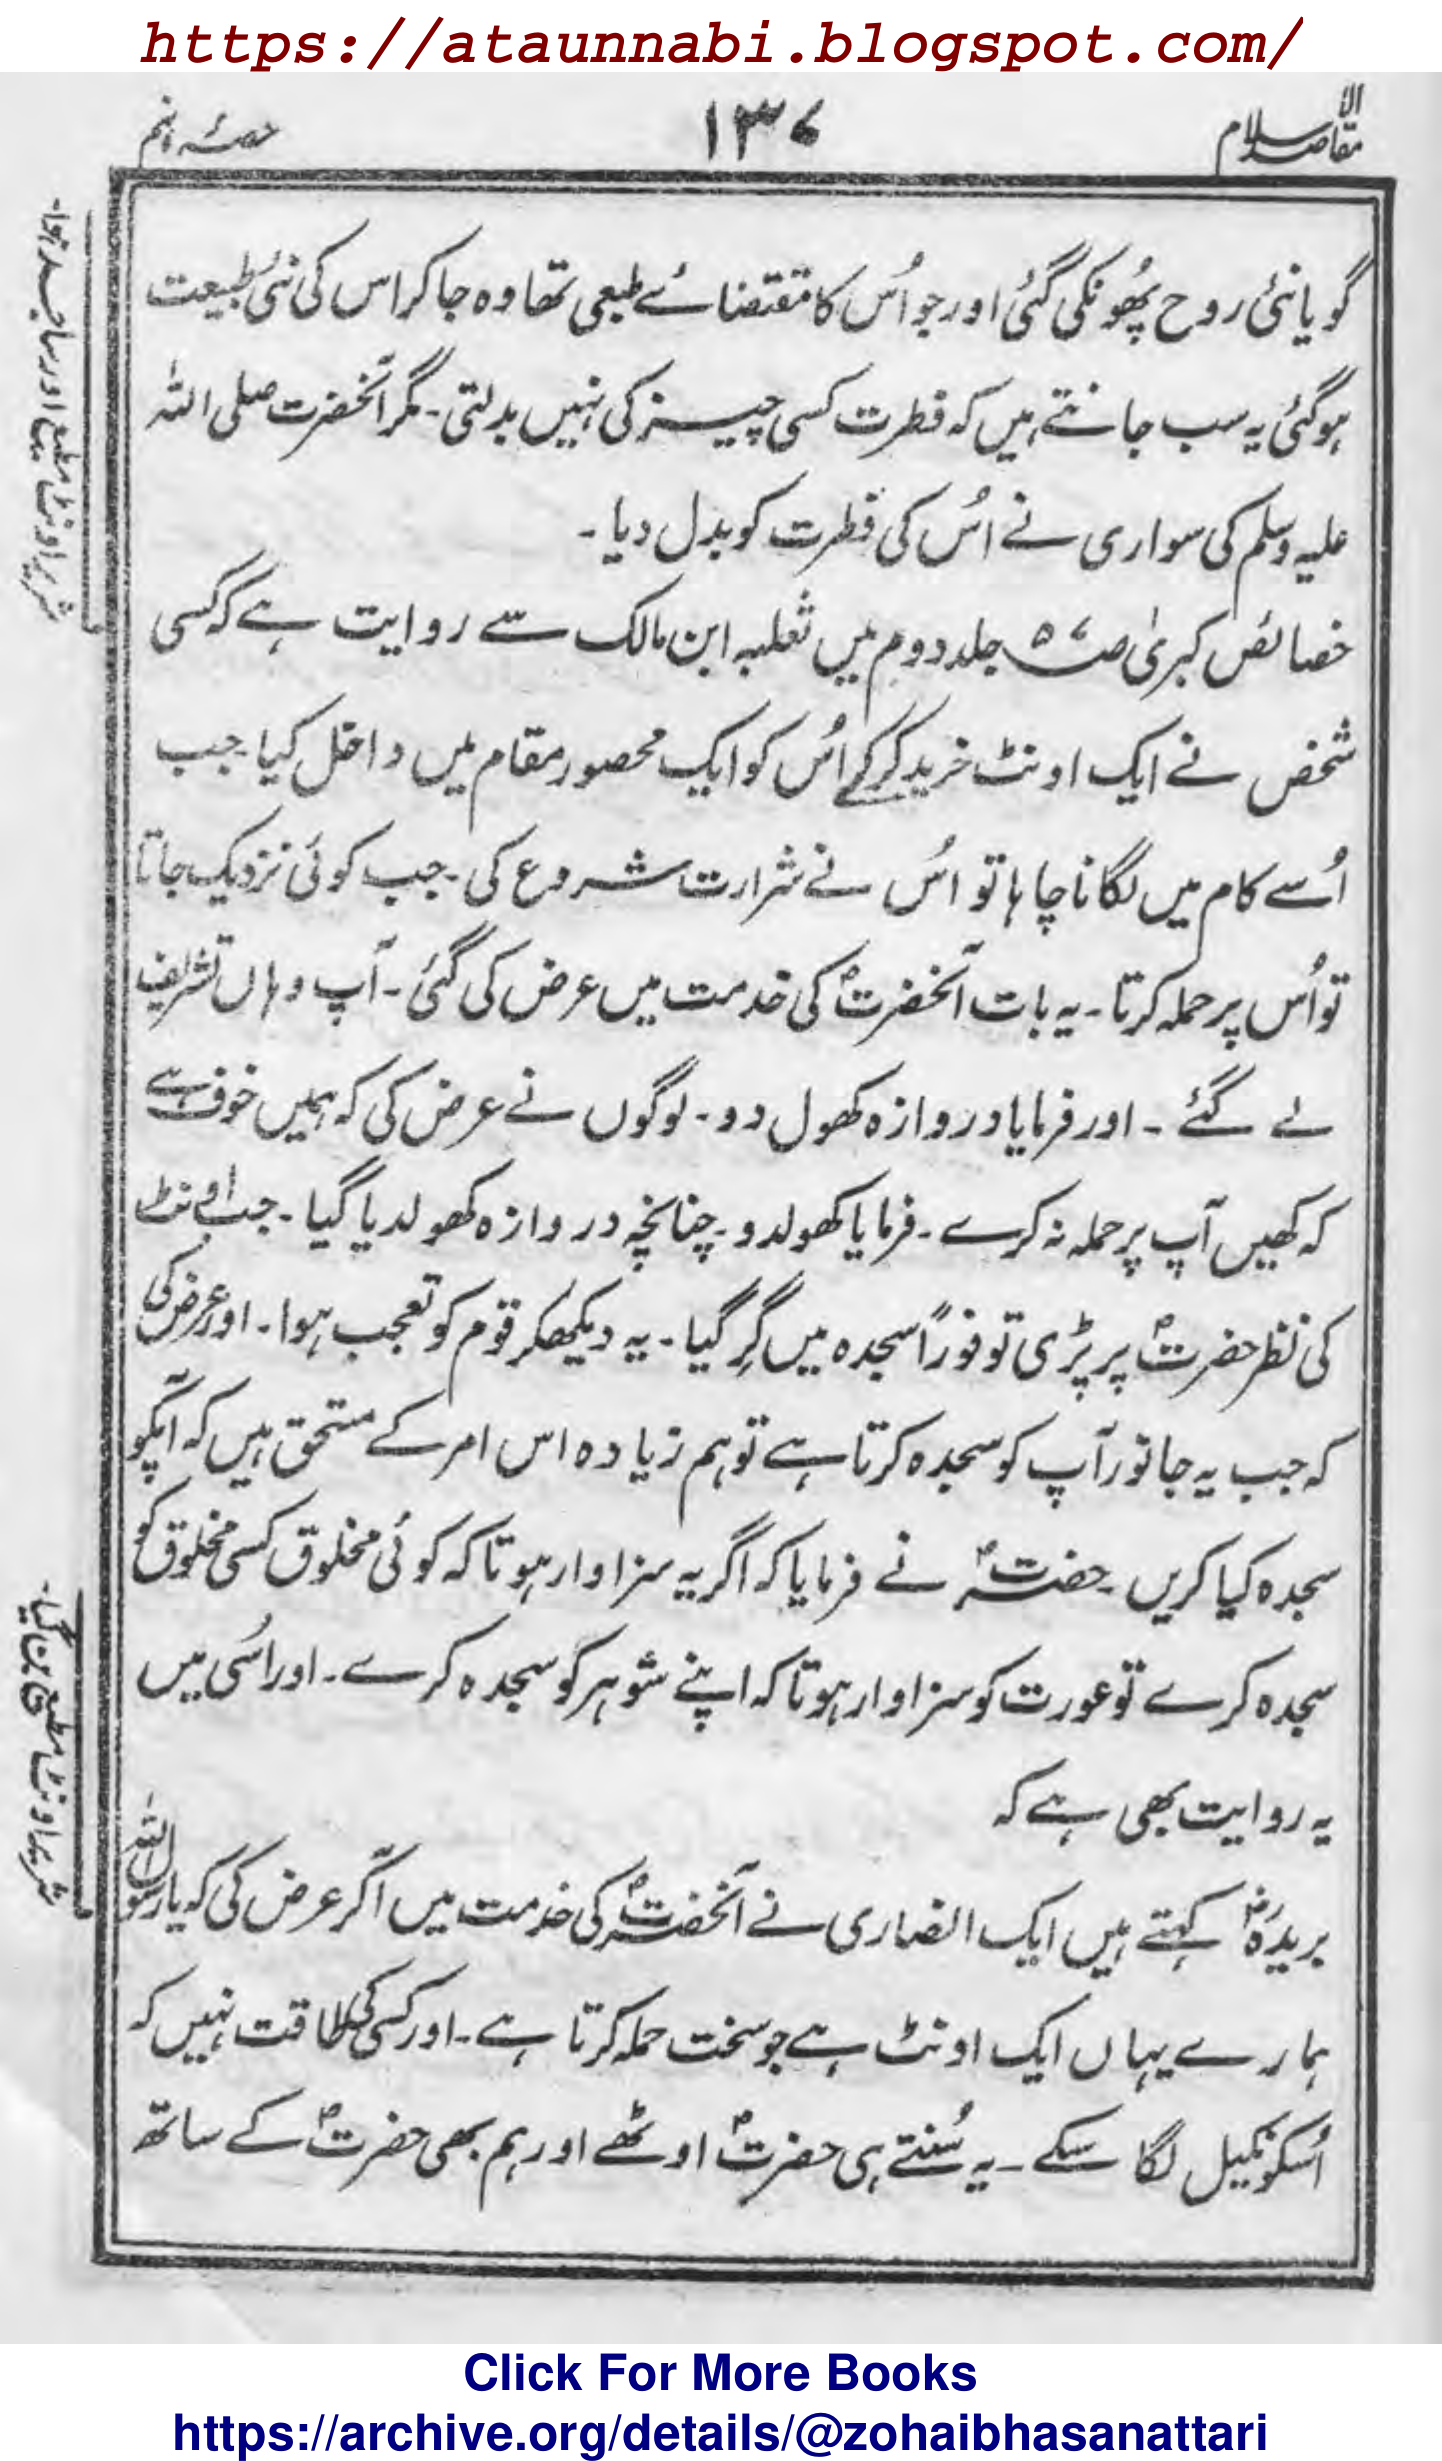 https://ataunnabi.blogspot.com/
مقاصد الاسلام
۱۳۷
حصہ نہم
گویا نئی روح پھُونکی گئی اور جو اُس کا مقتضائے طبعی تھا وہ جا کر اس کی نئی طبیعت
ہوگئی یہ سب جانتے ہیں کہ فطرت کسی چیز کی نہیں بدلتی ۔ مگر آنحضرت صلی اللہ
علیہ وسلم کی سواری نے اُس کی فطرت کو بدل دیا ۔
خصائص کبریٰ ص۵۷ جلد دوم میں ثعلبہ ابن مالک سے روایت ہے کہ کسی
شخص نے ایک اونٹ خرید کر کے اُس کو ایک محصور مقام میں داخل کیا ۔ جب
اُسے کام میں لگانا چاہا تو اُس نے شرارت شروع کی ۔ جب کوئی نزدیک جاتا
تو اُس پر حملہ کرتا ۔ یہ بات آنحضرتؐ کی خدمت میں عرض کی گئی ۔ آپ وہاں تشریف
لے گئے ۔ اور فرمایا دروازہ کھول دو ۔ لوگوں نے عرض کی کہ ہمیں خوف ہے
کہ کھیں آپ پر حملہ نہ کرے ۔ فرمایا کھولدو ۔ چنانچہ دروازہ کھولدیا گیا ۔ جب اونٹ
کی نظر حضرتؐ پر پڑی تو فوراً سجدہ میں گِر گیا ۔ یہ دیکھکر قوم کو تعجب ہوا ۔ اور عرض کی
کہ جب یہ جانور آپ کو سجدہ کرتا ہے تو ہم زیادہ اس امر کے مستحق ہیں کہ آپکو
سجدہ کیا کریں ۔ حضرتؐ نے فرمایا کہ اگر یہ سزاوار ہوتا کہ کوئی مخلوق کسی مخلوق کو
سجدہ کرے تو عورت کو سزاوار ہوتا کہ اپنے شوہر کو سجدہ کرے ۔ اور اُسی میں
یہ روایت بھی ہے کہ
بریدہؓ کہتے ہیں ایک انصاری نے آنحضرتؐ کی خدمت میں آکر عرض کی کہ یا رسول اللہ
ہمارے یہاں ایک اونٹ ہے جو سخت حملہ کرتا ہے ۔ اور کسی کی طاقت نہیں کہ
اُسکو نکیل لگا سکے ۔ یہ سُنتے ہی حضرتؐ اوٹھے اور ہم بھی حضرتؐ کے ساتھ
ف شریر اونٹ مطیع اور ساجد ہوا ۔
ف شریر اونٹ مطیع بن گیا ۔
Click For More Books
https://archive.org/details/@zohaibhasanattari